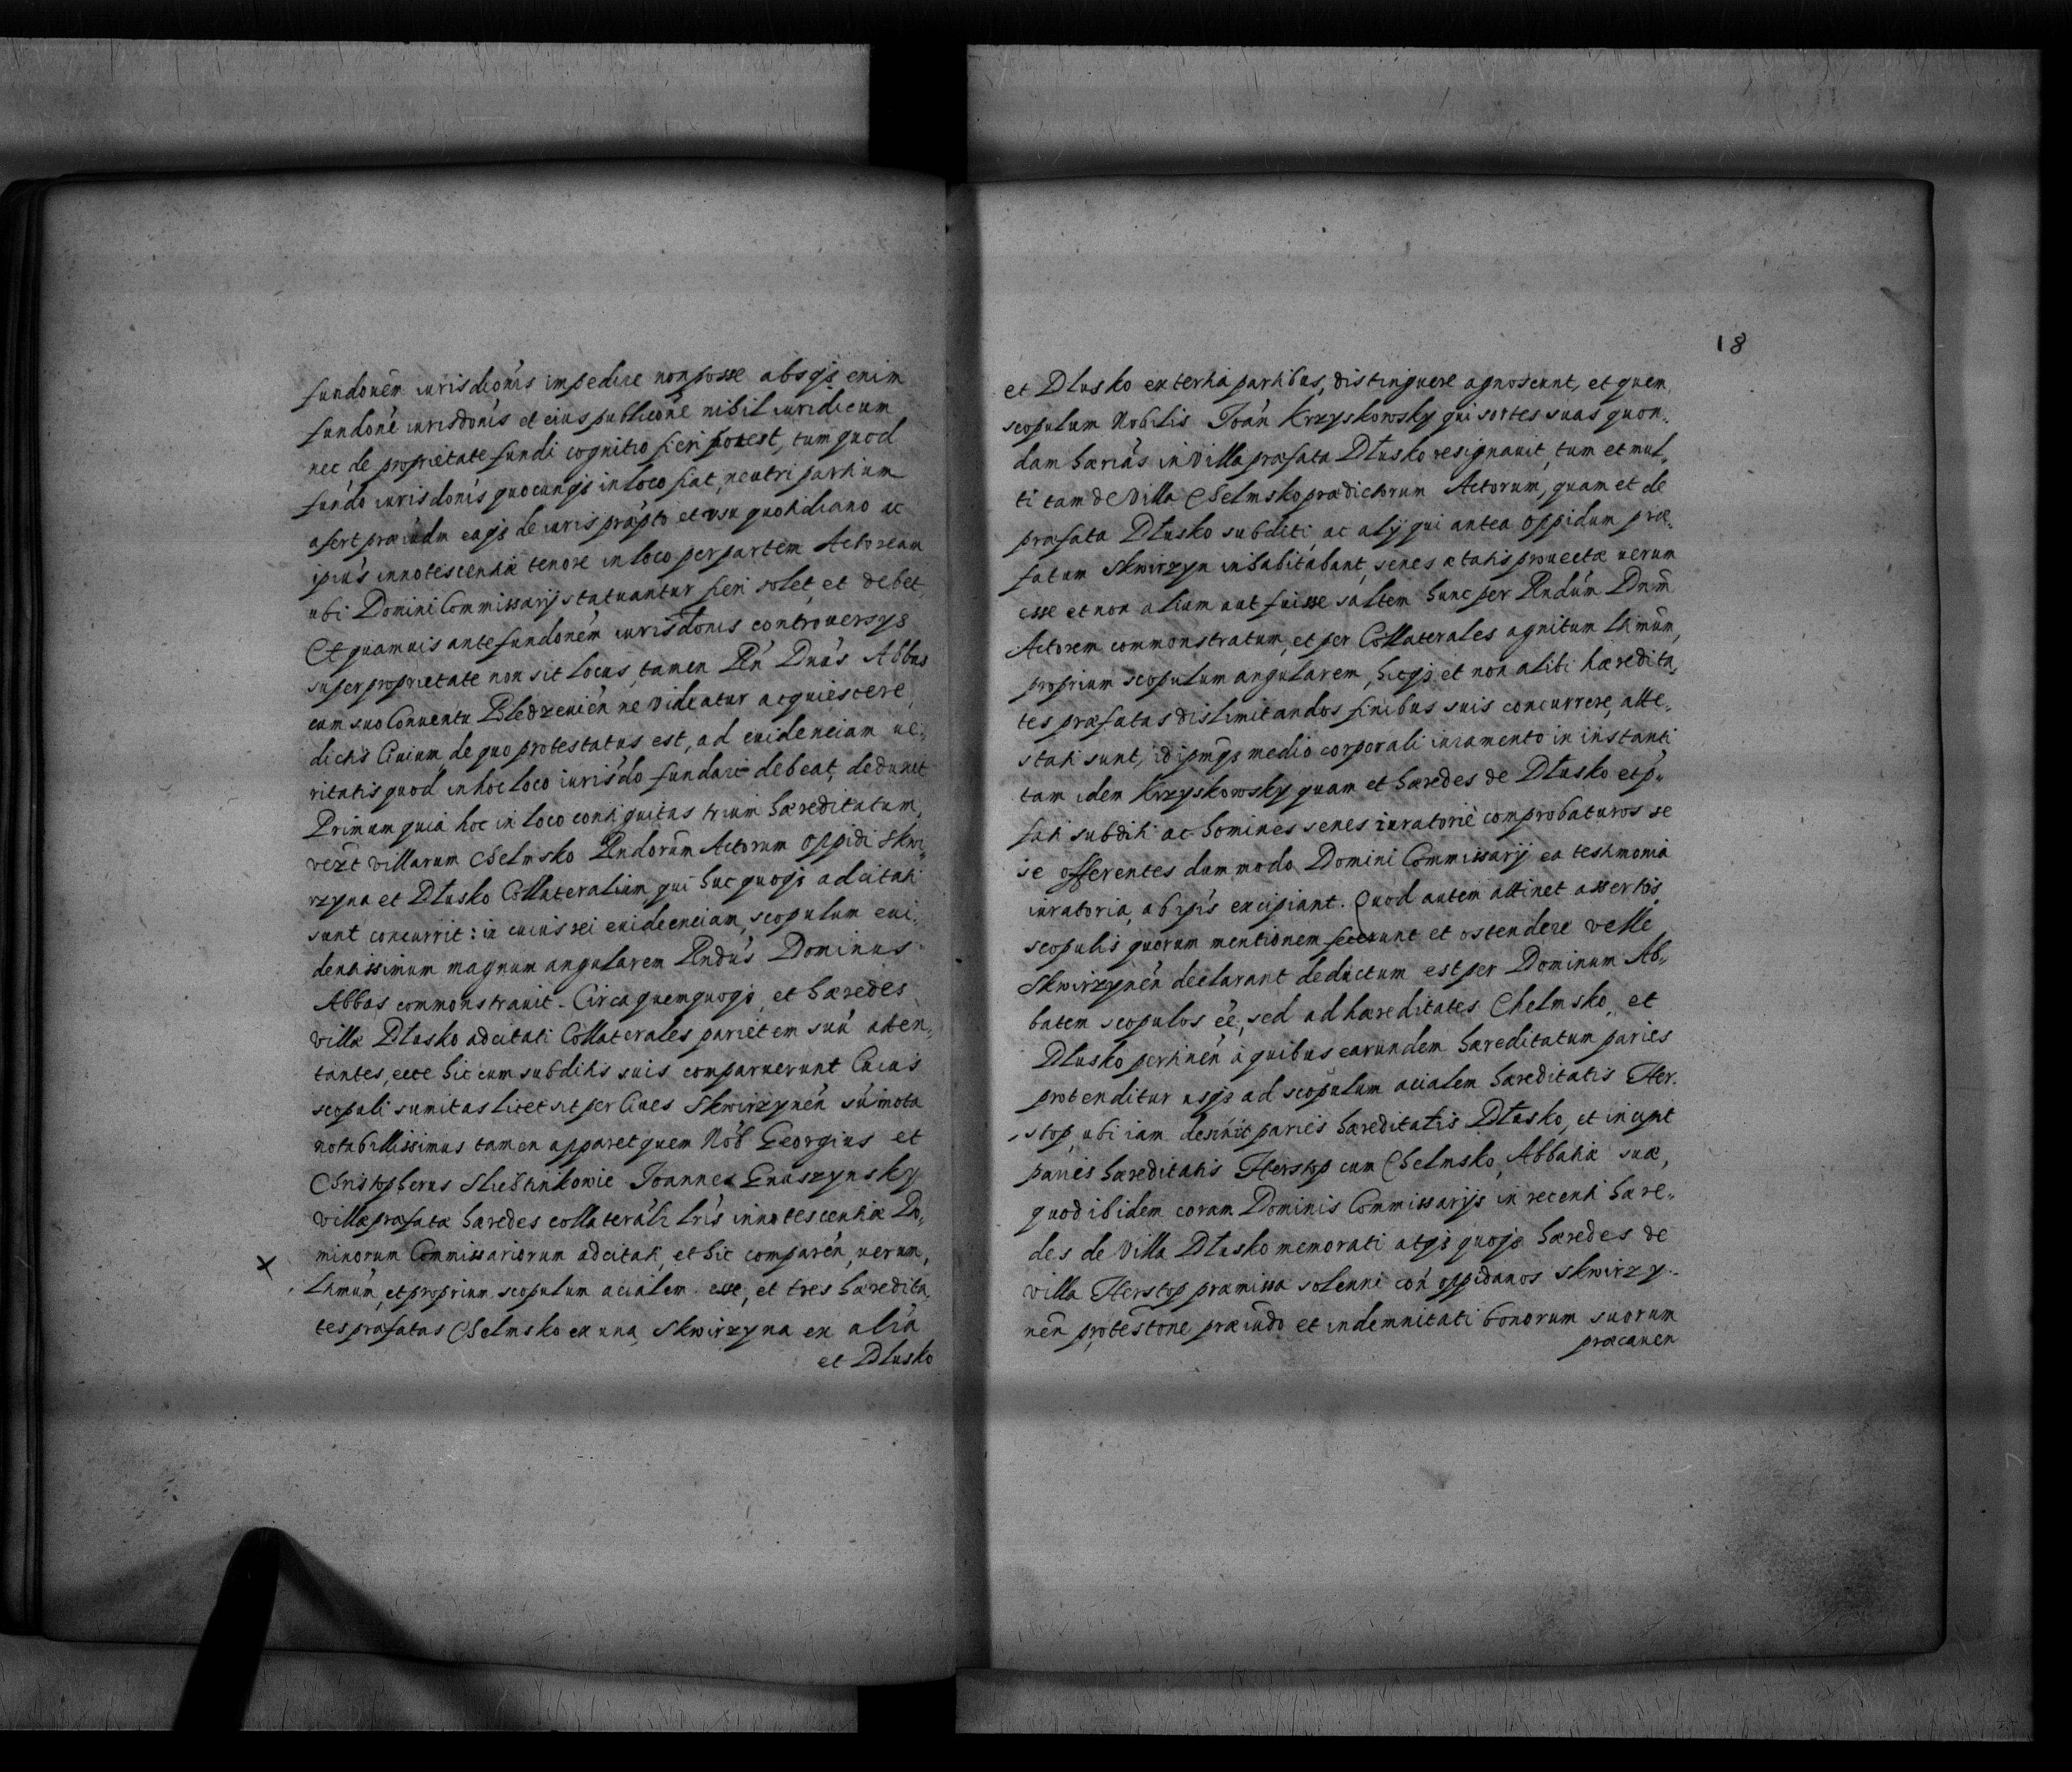 fundonem iurisdionis impedire non posse absqz enim
fundone iurisdonis et eius publicone nihil iuridicum
nec de proprietate fundi cognitio fieri potest, tum quod
fundo iurisdonis quocunqz in loco fiat, neutri partium
afert præiudm eaqz de iuris præpto et usu quotidiano ac
ipius innotescentiæ tenore in loco per partem Actoream
ubi Domini Commissarij statuantur fieri solet, et debet,
Et quamuis ante fundonem iurisdonis controuersys
super proprietate non sit locus, tamen Rn Dnus Abbas
cum suo Conuentu Bledzeuien ne videatur acquiescere
dictis Ciuium, de quo protestatus est, ad euidenciam ue„
ritatis quod in hoc loco iurisdo fundari debeat, deduxit
Primum quia hoc in loco contiguitas trium hæreditatum,
vezt villarum Chelmsko Rndorum Actorum Oppidi Skwi„
rzyna et Dłusko Collateralium, qui huc quoqz adcitati
sunt concurrit: in cuius rei euidenciam, scopulum eui„
dentissimum magnum angularem Rndus Dominus
Abbas commonstrauit. Circa quem quoqz, et hæredes
villæ Dłusko adcitati Collaterales parietem suu atten„
tantes, ecce hic cum subditis suis comparuerunt Cuius
scopuli sumitas licet sit per Ciues Skwirzynen sumota
notabillissimus tamen apparet quem Nob Georgius et
Christopherus Joannes Gnuszynsky
villæ præfatæ hæredes collaterali lris innotescentiæ Do„
minorum Commissariorum adcitati, et hic comparen, uerum,
Ltimum, et proprium scopulum acialem esse, et tres hæredita„
tes præfatas Chelmsko ex una, Skwirzyna ex alia
et Dłusko
18
et Dłusko ex tertia partibus, distinguere agnoscunt, et quem
scopulum Nobilis Joan Krzyskowsky qui sortes suas quon„
dam hærias in Villa præfata Dłusko resignauit, tum et mul„
ti tam de Villa Chelmsko prædictorum Actorum, quam et de
præfata Dłusko subditi ac alij qui antea Oppidum præ„
fatum Skwirzyn inhabitabant, senes ætatis prouectæ uerum
esse et non alium aut fuisse saltem hunc per Rndum Dnm
Actorem commonstratum, et per Collaterales agnitum Ltimum,
proprium scopulum angularem, hicqz et non alibi hæredita„
tes præfatas dislimitandos finibus suis concurrere, atte„
stati sunt, idipmqz medio corporali iuramento in instanti
tam idem Krzyskowsky quam et hæredes de Dłusko et p„
fati subditi ac homines senes iuratorie comprobaturos se
se offerentes dummodo Domini Commissarij ea testimonia
iuratoria, ab ipis excipiant. Quod autem attinet assertis
scopulis quorum mentionem fecerunt et ostendere velle
Skwirzynen declarant deductum est per Dominum Ab„
batem scopulos ee, sed ad hæreditates Chelmsko, et
Dłusko pertinen a quibus earundem hæreditatum paries
protenditur usqz ad scopulum acialem hæreditatis Her„
stop, ubi iam desinit paries hæreditatis Dłusko, et incipit
paries hæreditatis Herstop cum Chelmsko, Abbatiæ suæ,
quod ibidem coram Dominis Commissarijs in recenti hære„
des de Villa Dłusko memorati atqz quoqz hæredes de
villa Herstop præmissa solenni con oppidanos Skwirzy„
nen protestone præiudo et indemnitati bonorum suorum
præcauen